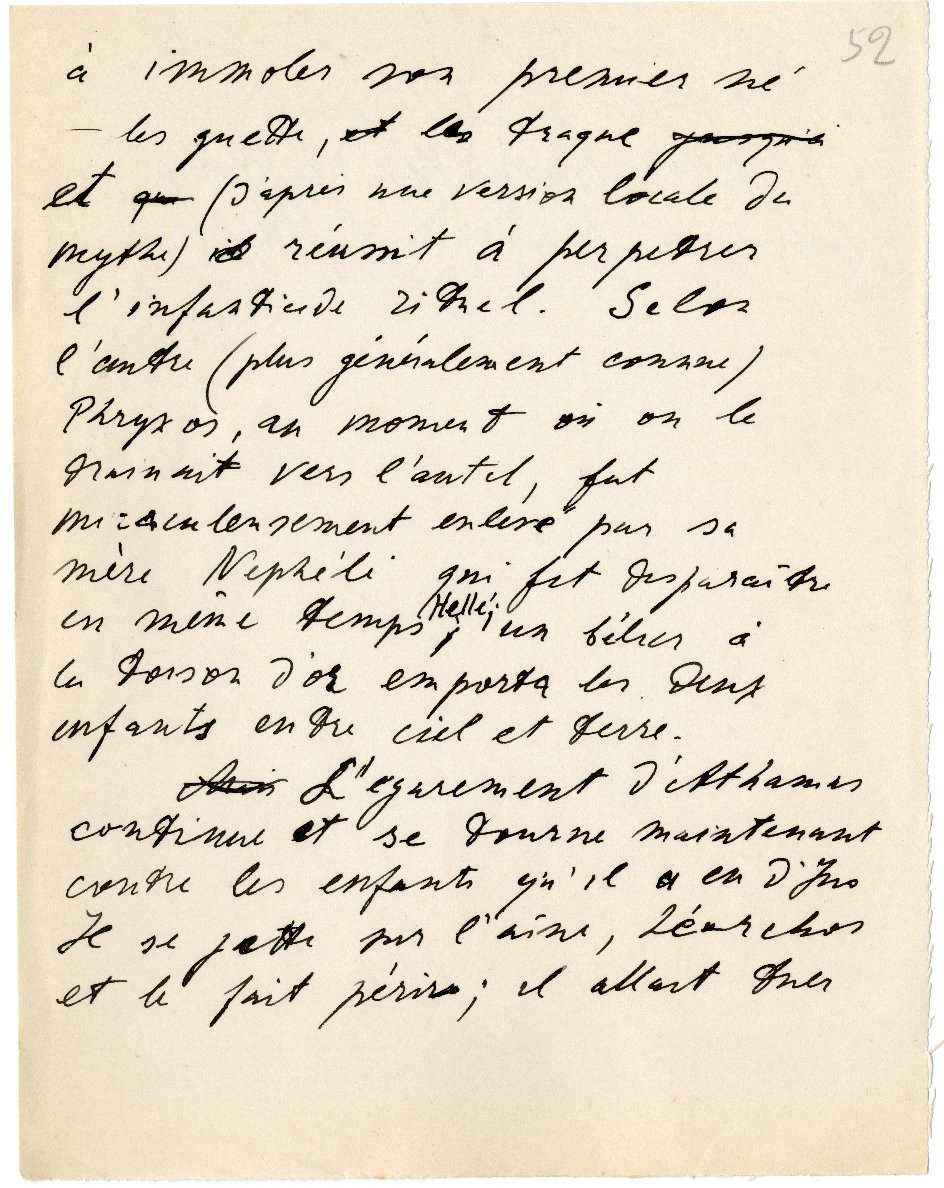 52
à immoler son premier né
— les guette, et les traque jusqu'à
et que (d'après une version locale du
mythe) il réussit à perpetrer
l'infanticide rituel. Selon
l'autre (plus généralement connue)
Phryxos, au moment où on le
trainait vers l'autel, fut
miraculeusement enlevé par sa
mère Nephéli qui fit disparaître
en même temps Hellé; un bélier à
la toison d'or emporta les deux
enfants entre ciel et terre.
Mais L'egarement d'Athamas
continue et se tourne maintenant
contre les enfants qu'il a eu d'Ino
Il se jette sur l'aîné, Léarchos
et le fait périr; il allait tuer